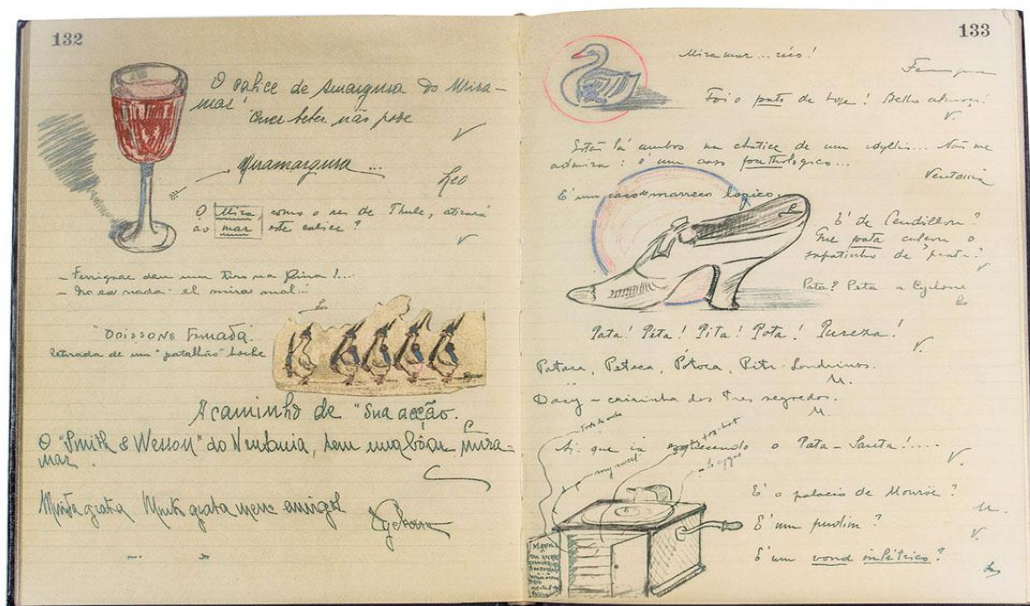 132
O calice de Amargura do Mira-
mar
Quer beber não pode
V
Miramargura ...
Leo
O Mira, como o rei de Thule, atirará
ao mar este calice?
V
- Ferrignac deu um tiro na !...
- No es nada. el mira mal...
"DOISSONS Fumada"
Retirada de um "patalhão" boche
A caminho de "sua acção.
O "Smith & Wesson" do Ventania, tem uma bôca, mira-
mar.
Muito grata Muito grata meus amigos
133
Miramar... !
Foi o pato de hoje! Bello almoço!
V.
Estão lá ambos na chatice de um idyllio... Não me
admira: é um caso pathologico...
Ventania
E' um caso marreco logico
E' de Cendrillon?
Que pata calçou o
sapatinho de prata?
V
Pata? Peta a Cyclone
Pata! Péta! Pita! Pota! Pureza!
V.
Patara, Peteca, Potoca,
M.
Daisy - caixinha dos tres segredos.
M.
fox-trot
my
le cygne
Ai, que ia esquecendo o Pata-Santa!....
V.
E' o palacio de Monroe?
M.
E' um pudim?
V.
E' um